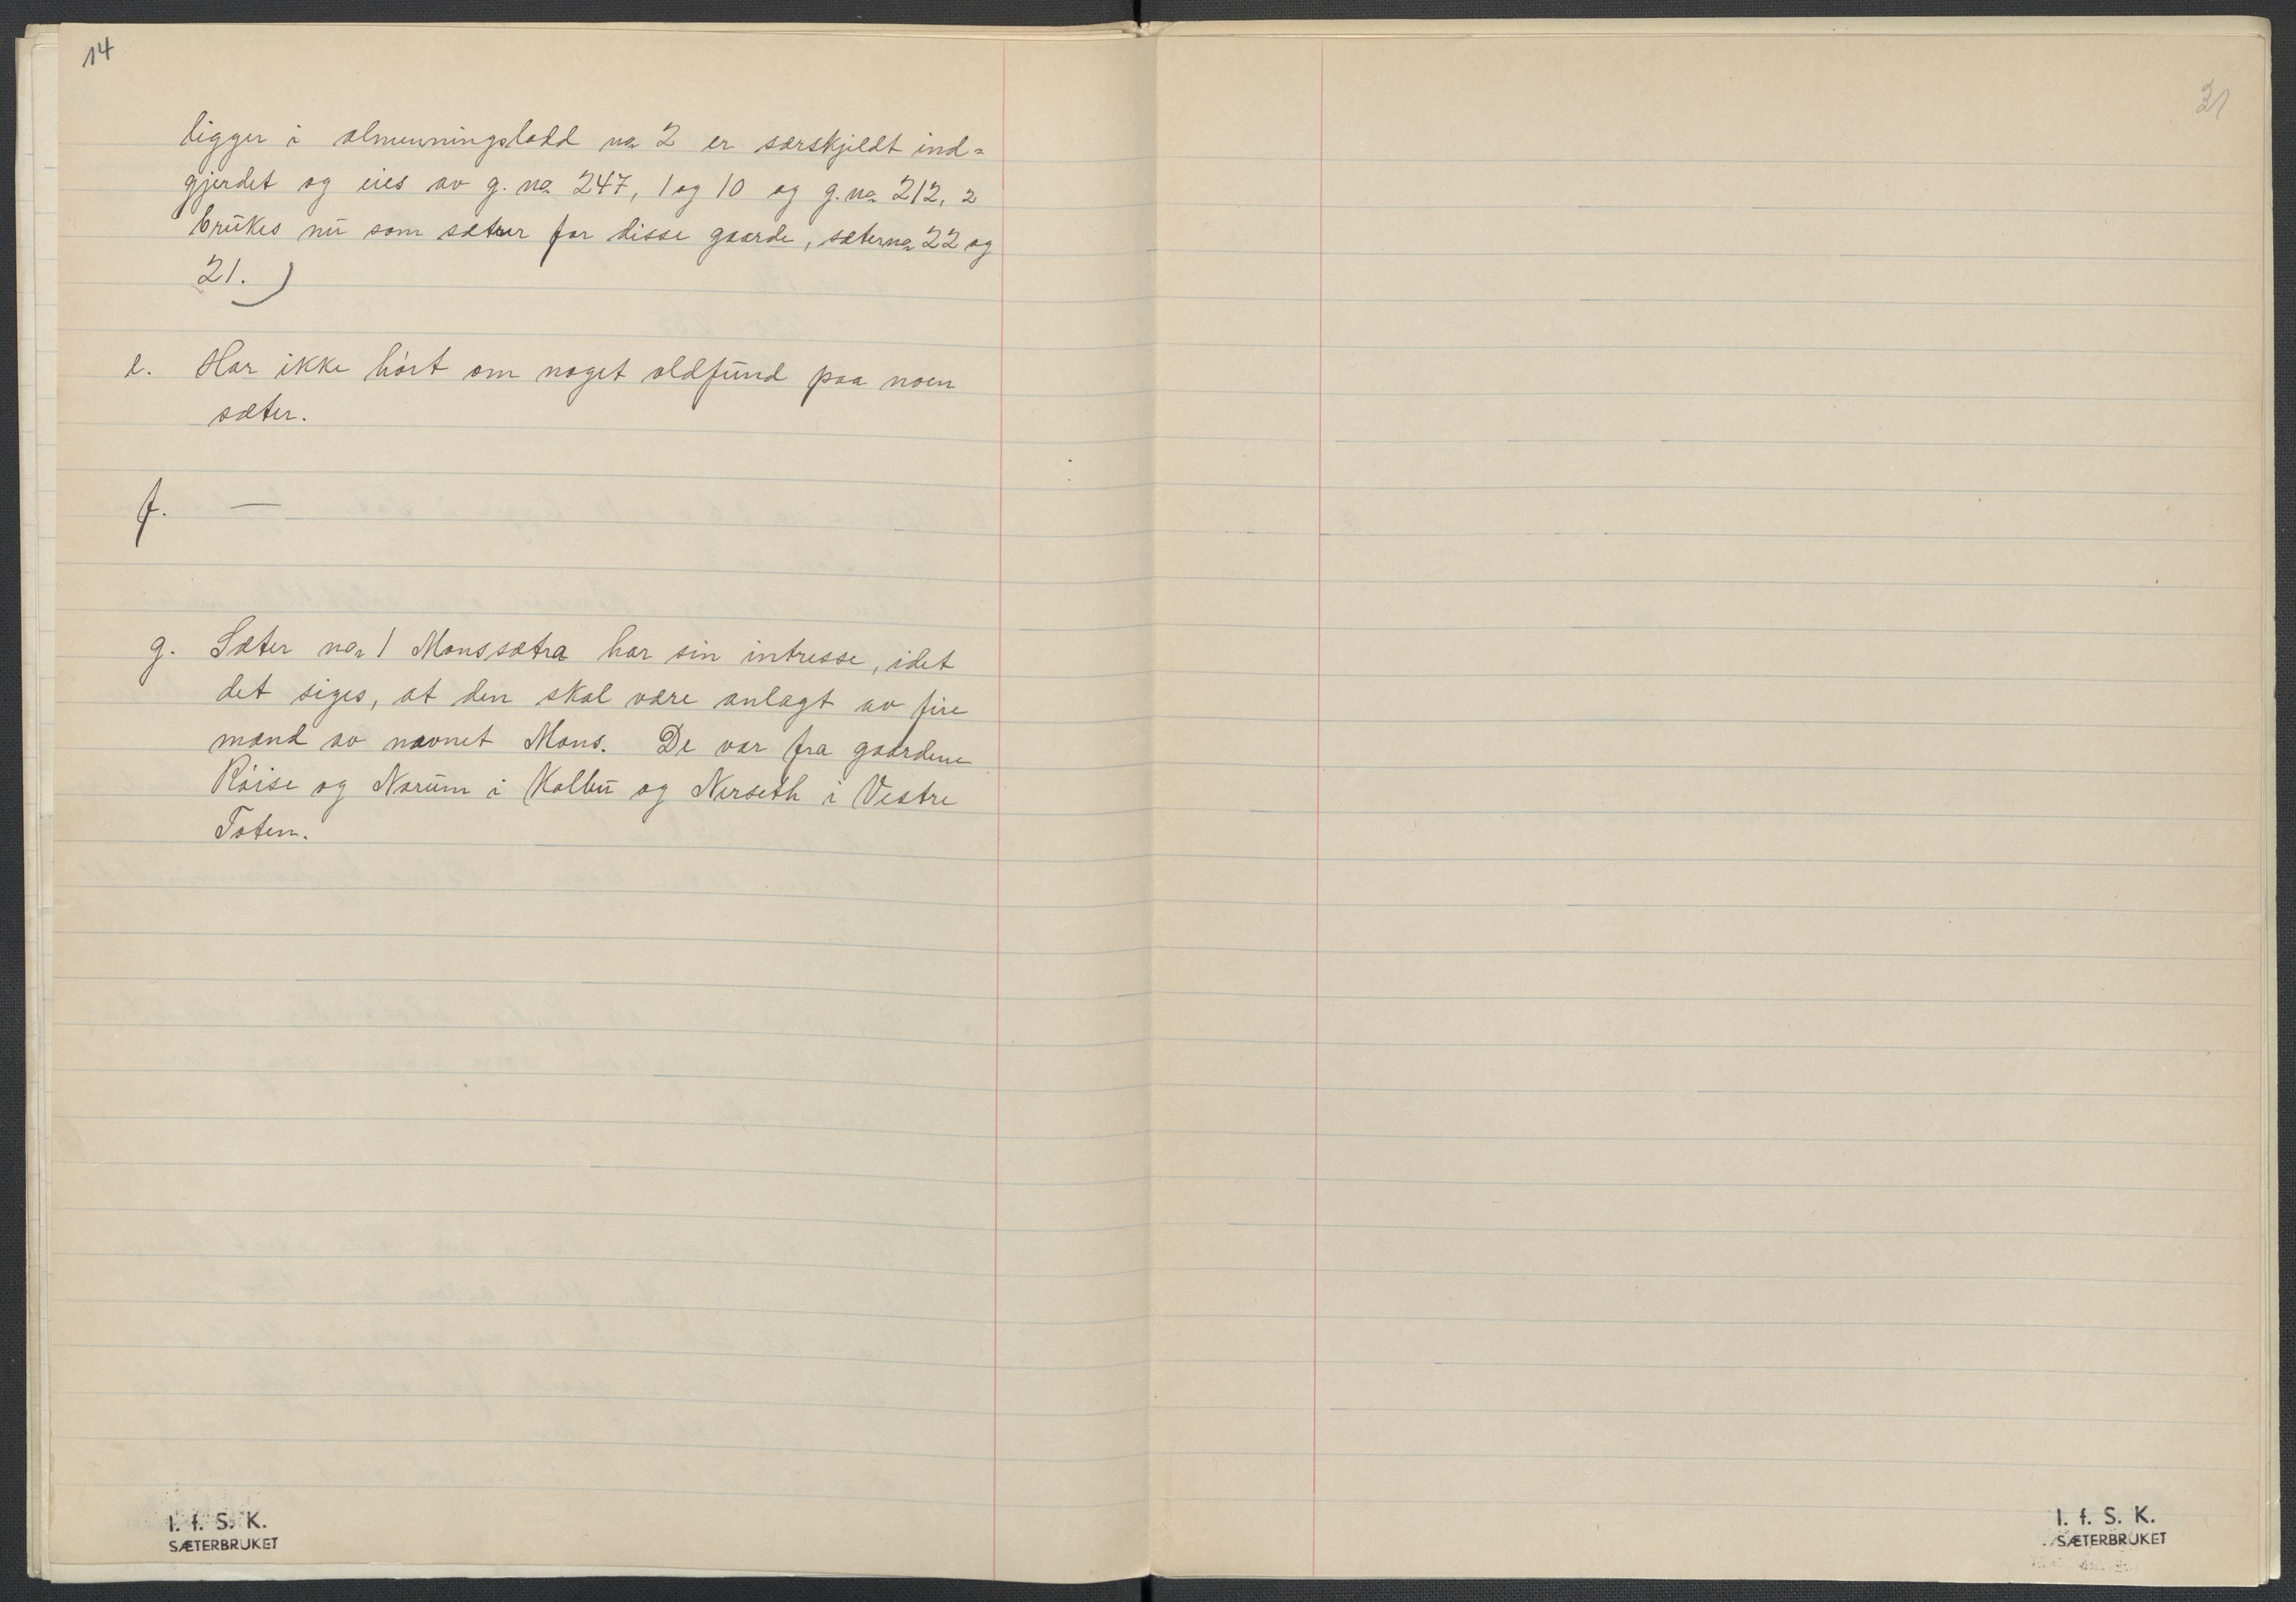 14
ligger i almenningslodd no 2 er særskjeldt ind=
gjerdet og eies av g. no 247, 1 og 10 og g. no 212, 2
brukes nu som sæter for disse gaarde, sæterno 22 og
21.)
e. Har ikke hørt om noget oldfund paa noen
sæter.
f. —
g. Sæter no 1 Monssætra har sin intresse, idet
det siges, at den skal være anlagt av fire
mænd av navnet Mons. De var fra gaardene
Røise og Narum i Kolbu og Nerseth i Vestre
Toten.
I. f. S. K.
SÆTERBRUKET
31
I. f. S. K.
SÆTERBRUKET